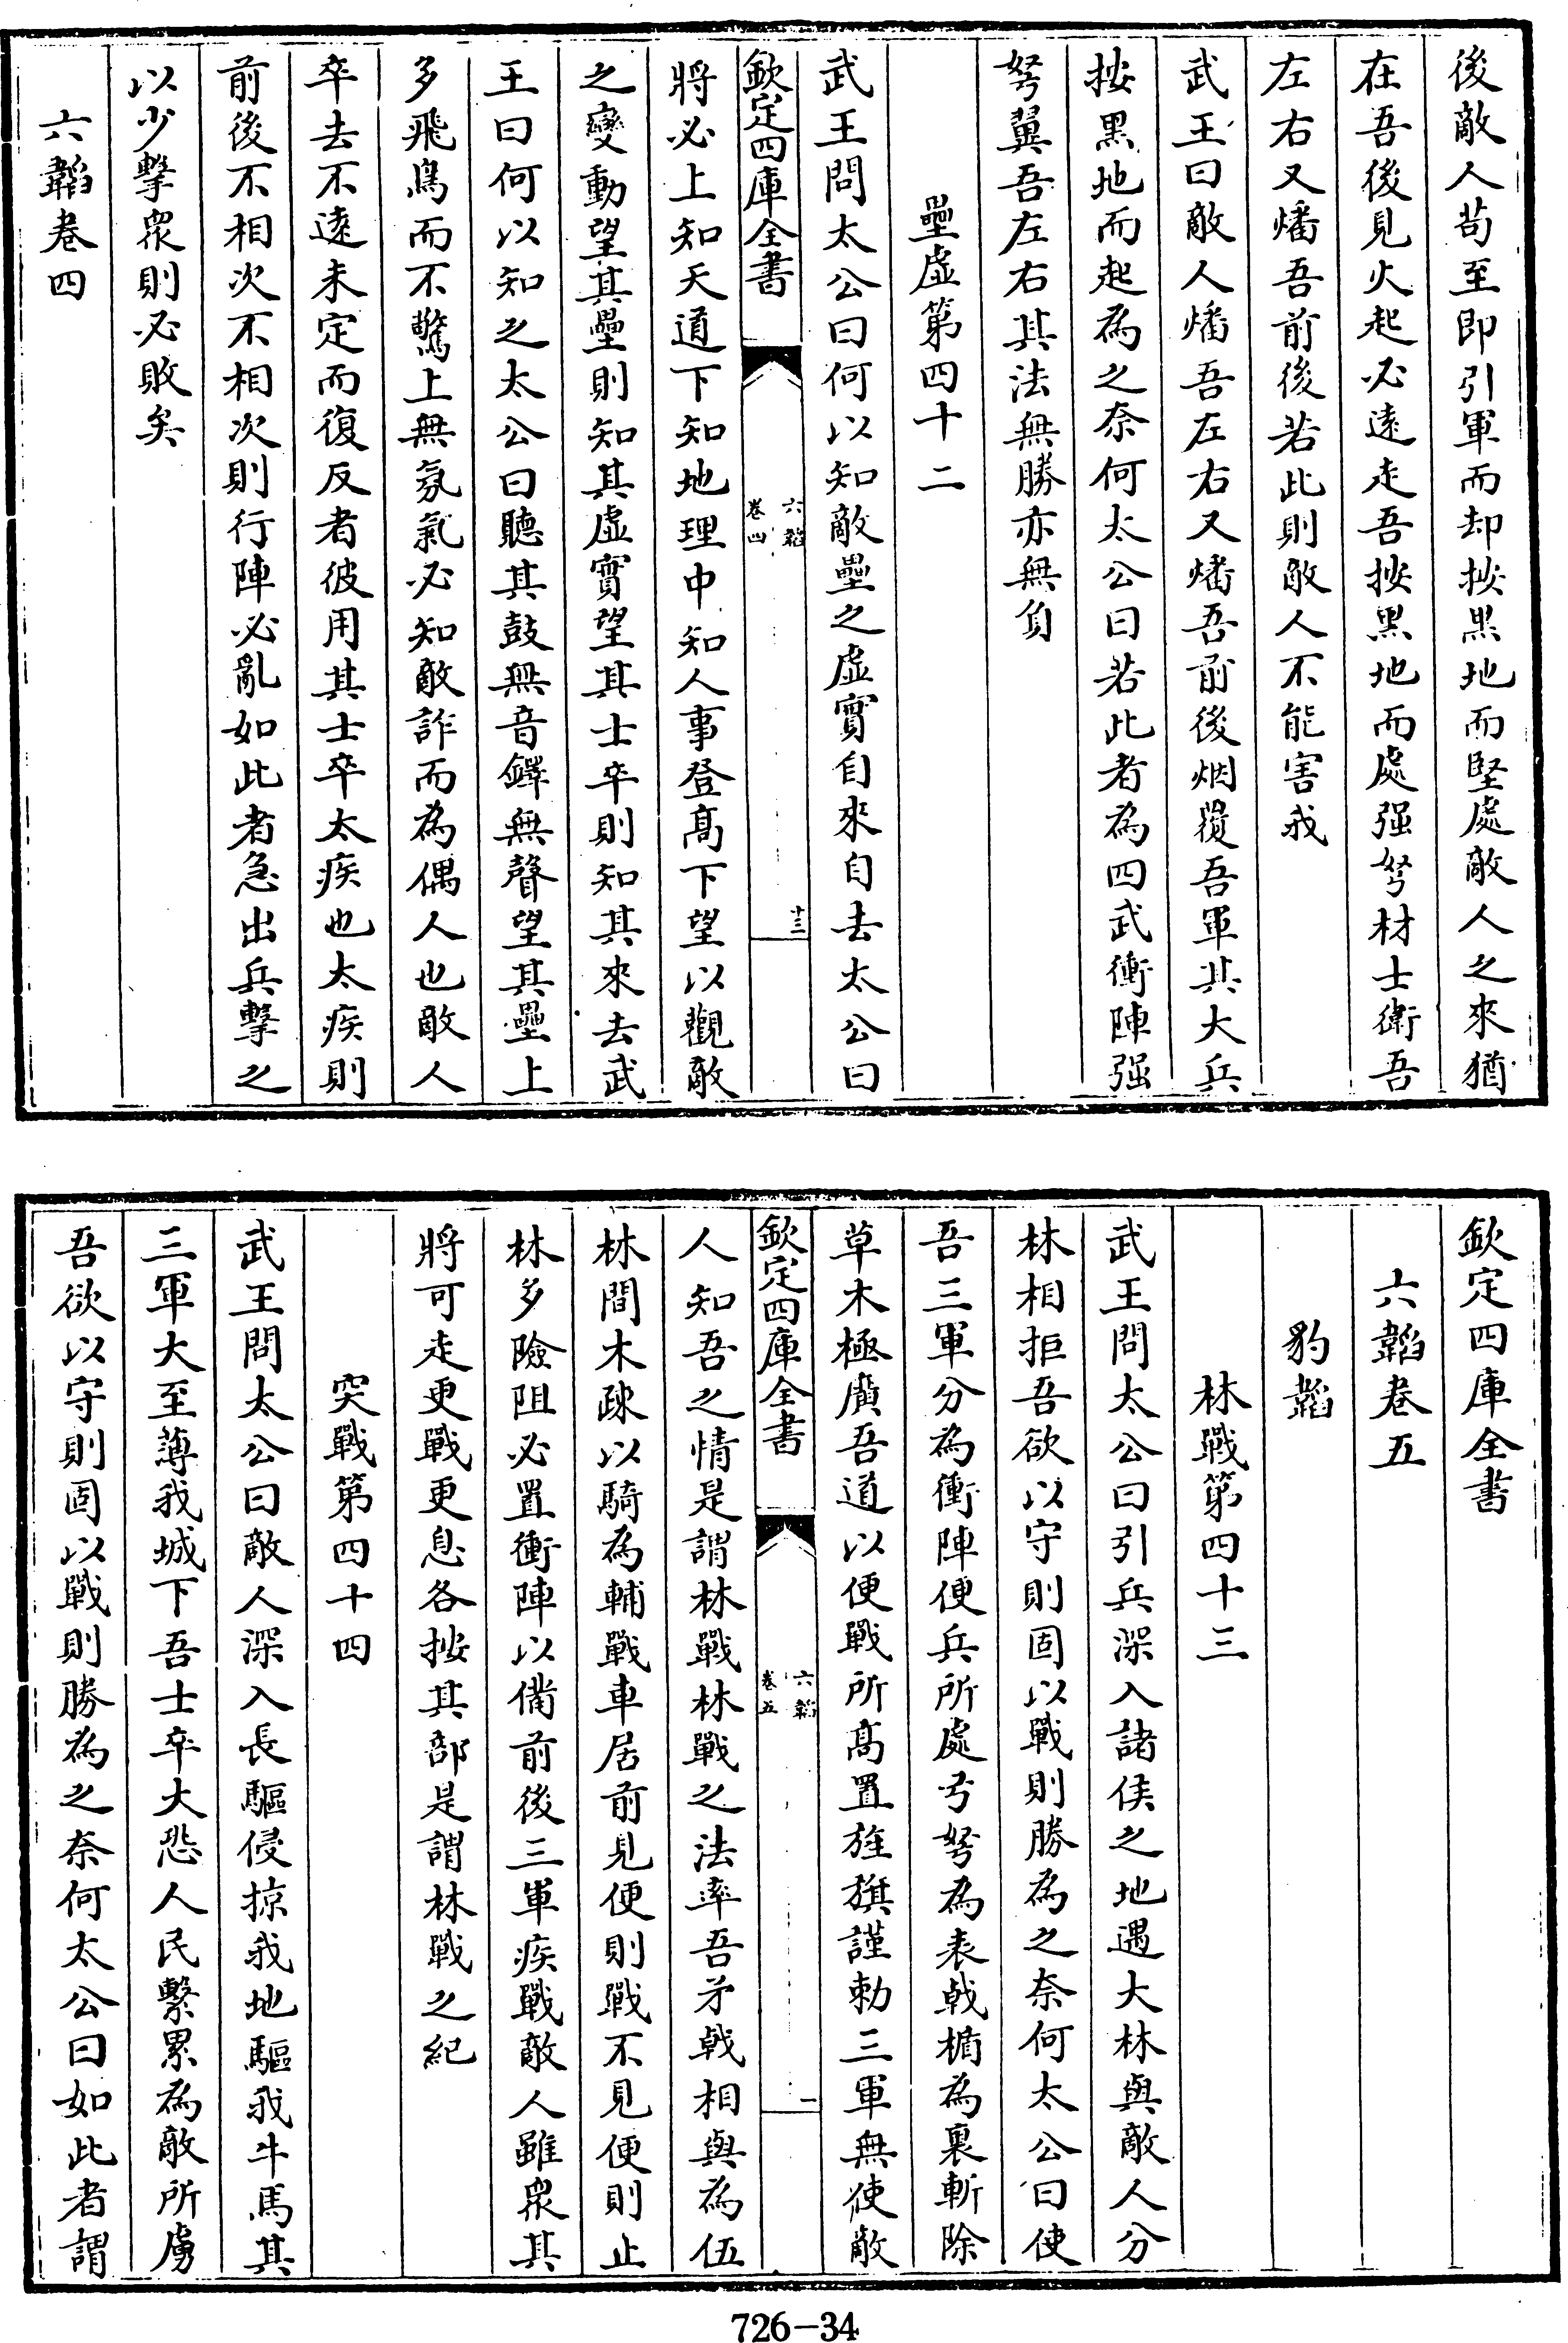 後敵人苟至即引軍而却按黒地而堅處敵人之來猶
在吾後見火起必遠走吾按黒地而處强弩材士衛吾
左右又燔吾前後若此則敵人不能害我
武王曰敵人燔吾左右又燔吾前後烟覆吾軍其大兵
按黒地而起為之奈何太公曰若此者為四武衝陣强
弩翼吾左右其法無勝亦無負
壘虛第四十二
武王問太公曰何以知敵壘之虛實自來自去太公曰
欽定四庫全書
六韜
卷四
十三
將必上知天道下知地理中知人事登高下望以觀敵
之變動望其壘則知其虛實望其士卒則知其來去武
王曰何以知之太公曰聽其鼓無音鐸無聲望其壘上
多飛鳥而不驚上無氛氣必知敵詐而為偶人也敵人
卒去不遠未定而復反者彼用其士卒太疾也太疾則
前後不相次不相次則行陣必亂如此者急出兵擊之
以少擊衆則必敗矣
六韜卷四
欽定四庫全書
六韜卷五
豹韜
林戰第四十三
武王問太公曰引兵深入諸侯之地遇大林與敵人分
林相拒吾欲以守則固以戰則勝為之奈何太公曰使
吾三軍分為衝陣便兵所處弓弩為表戟楯為裏斬除
草木極廣吾道以便戰所高置旌旗謹勅三軍無使敵
欽定四庫全書
六韜
卷五
一
人知吾之情是謂林戰林戰之法率吾矛戟相與為伍
林間木疎以騎為輔戰車居前見便則戰不見便則止
林多險阻必置衝陣以備前後三軍疾戰敵人雖衆其
將可走更戰更息各按其部是謂林戰之紀
突戰第四十四
武王問太公曰敵人深入長驅侵掠我地驅我牛馬其
三軍大至薄我城下吾士卒大恐人民繫累為敵所虜
吾欲以守則固以戰則勝為之奈何太公曰如此者謂
726-34